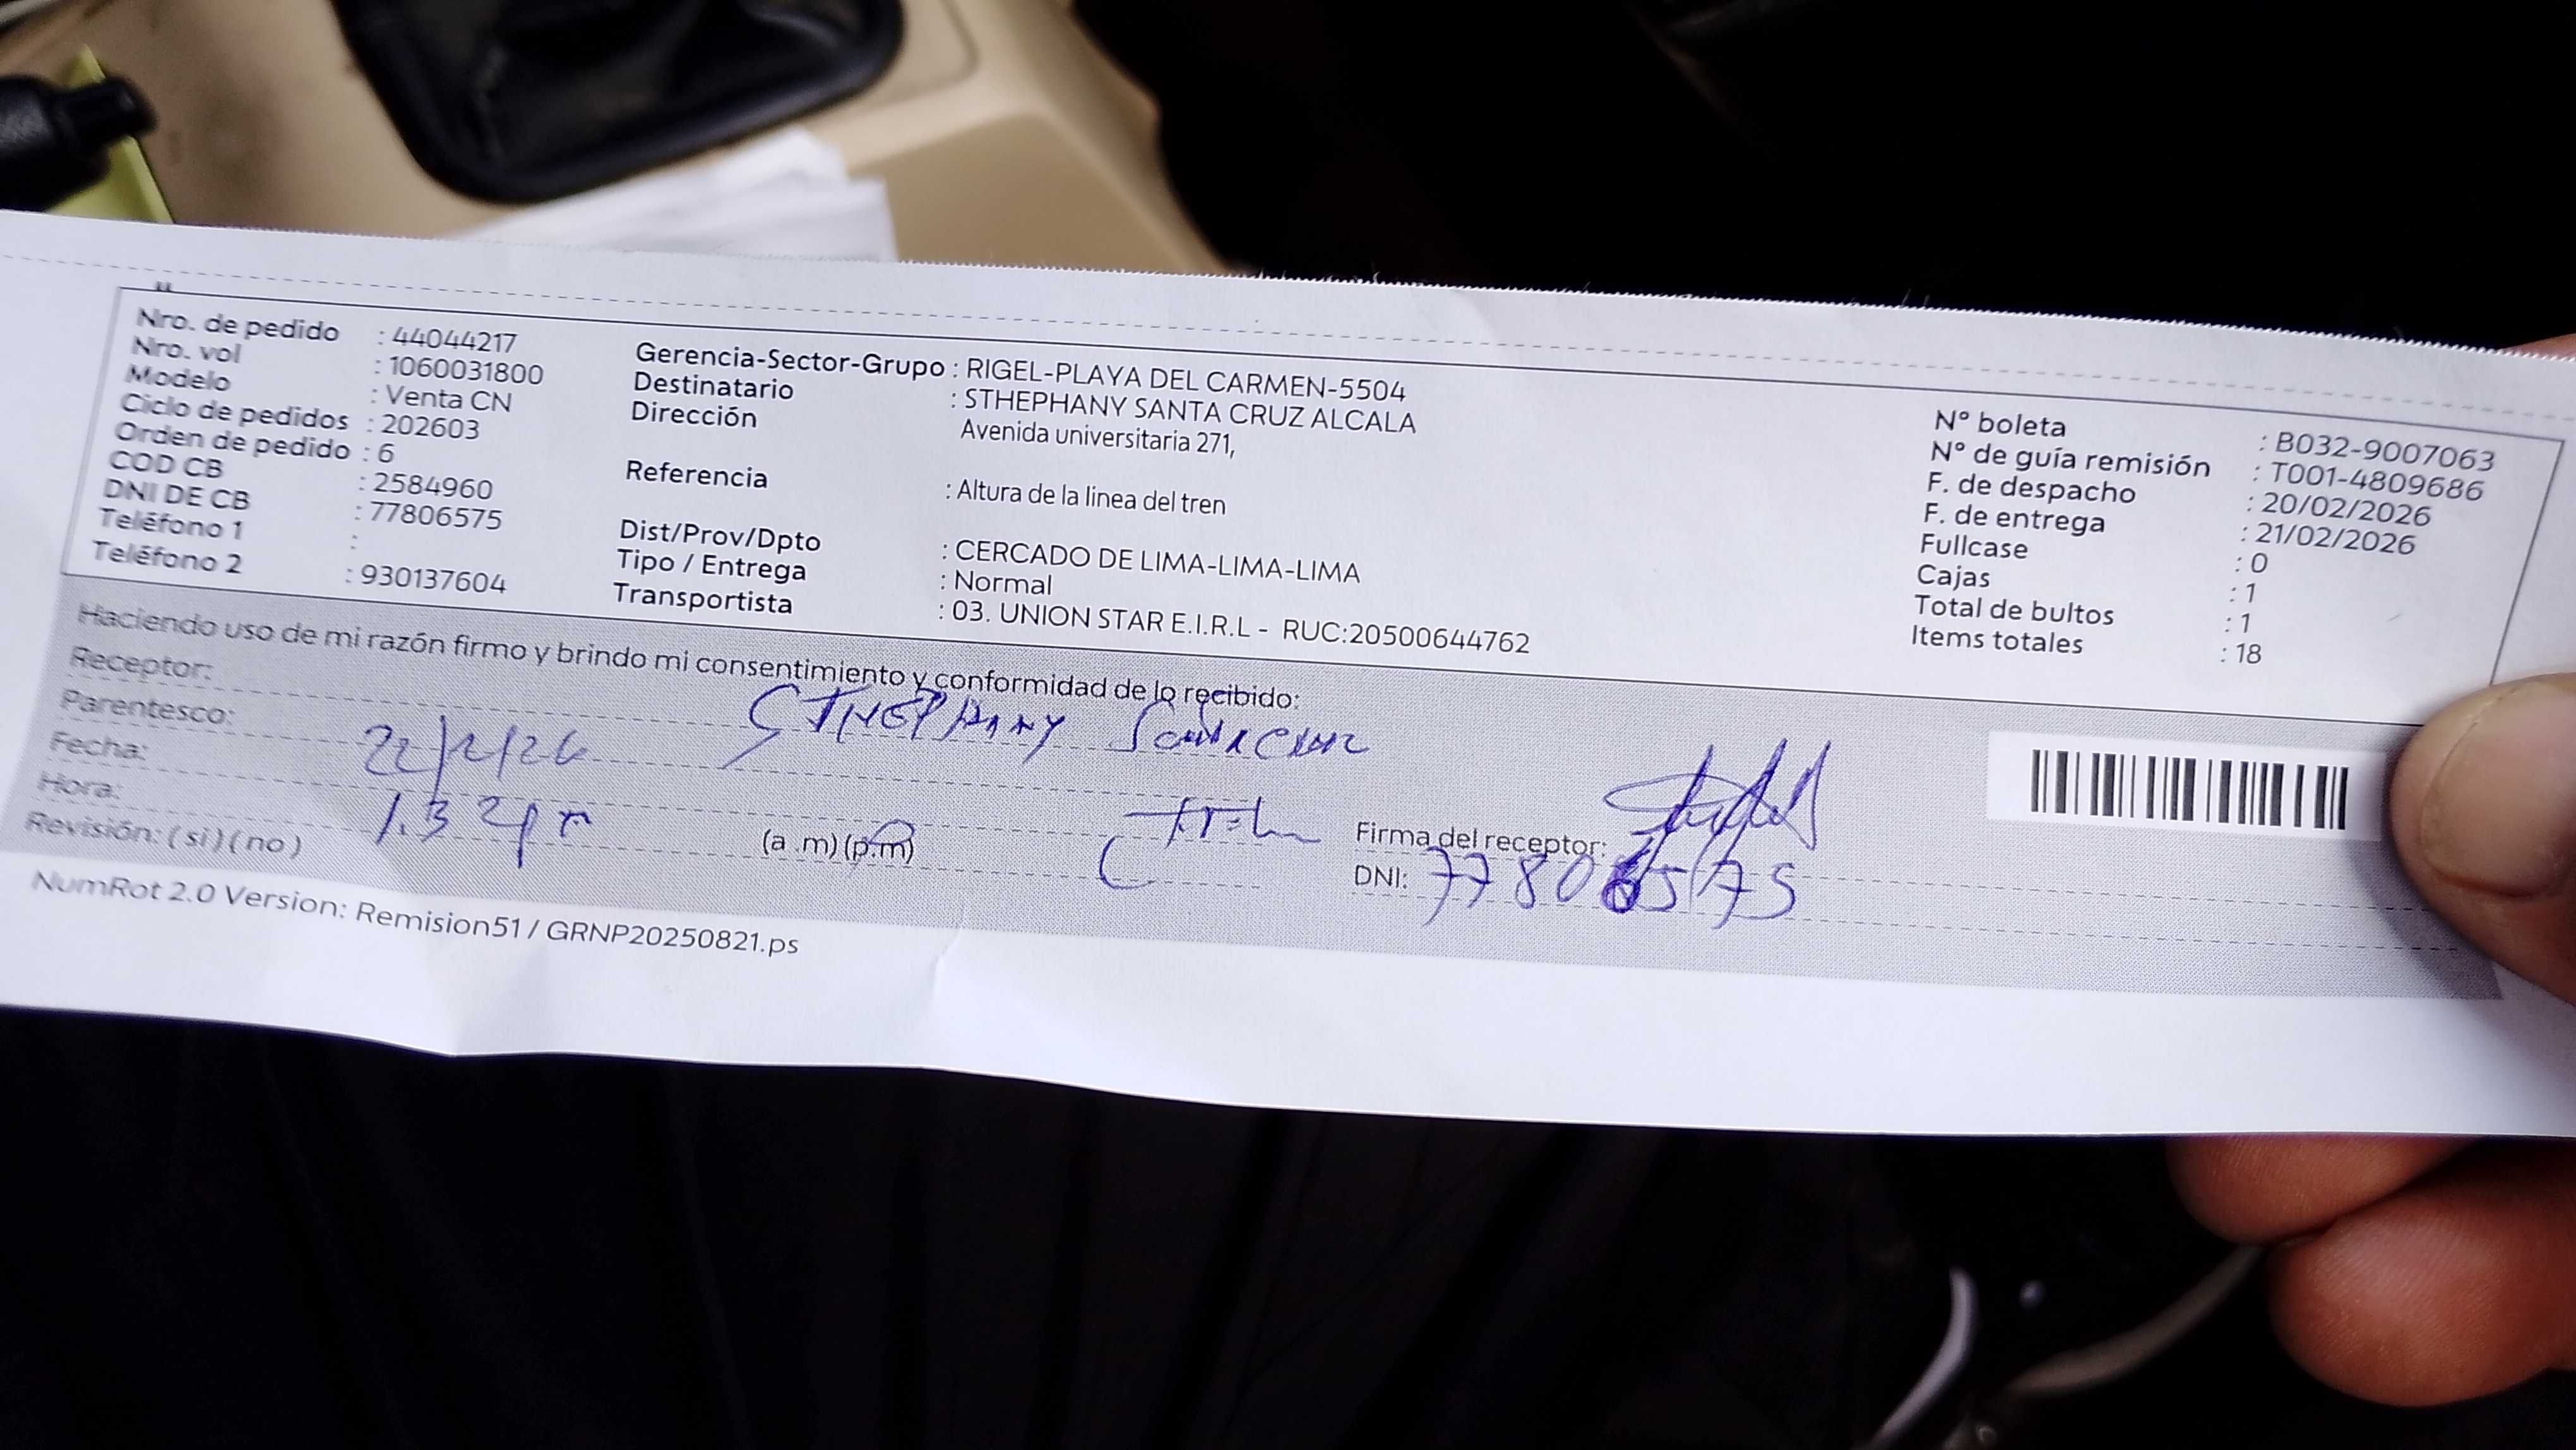 Nro. de pedido : 44044217
Nro. vol : 1060031800
Modelo : Venta CN
Ciclo de pedidos : 202603
Orden de pedido : 6
COD CB : 2584960
DNI DE CB : 77806575
Teléfono 1 :
Teléfono 2 : 930137604
Gerencia-Sector-Grupo : RIGEL-PLAYA DEL CARMEN-5504
Destinatario : STHEPHANY SANTA CRUZ ALCALA
Dirección Avenida universitaria 271,
Referencia : Altura de la linea del tren
Dist/Prov/Dpto : CERCADO DE LIMA-LIMA-LIMA
Tipo / Entrega : Normal
Transportista : 03. UNION STAR E.I.R.L - RUC:20500644762
N° boleta : B032-9007063
N° de guía remisión : T001-4809686
F. de despacho : 20/02/2026
F. de entrega : 21/02/2026
Fullcase : 0
Cajas : 1
Total de bultos : 1
Items totales : 18
Haciendo uso de mi razón firmo y brindo mi consentimiento y conformidad de lo recibido:
Receptor: STHEPHANY
Parentesco:
Fecha: 22/2/26
Hora: 1.32pm (a .m) (p.m)
Revisión: ( si ) ( no )
Firma del receptor:
DNI: 77806575
NumRot 2.0 Version: Remision51 / GRNP20250821.ps